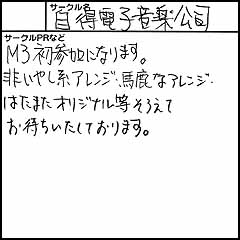 サークル名
自得電子音楽公司
サークルPRなど
M3初参加になります。
非いやし系アレンジ・馬鹿なアレンジ・
はたまたオリジナル等そろえて
お待ちいたしております。